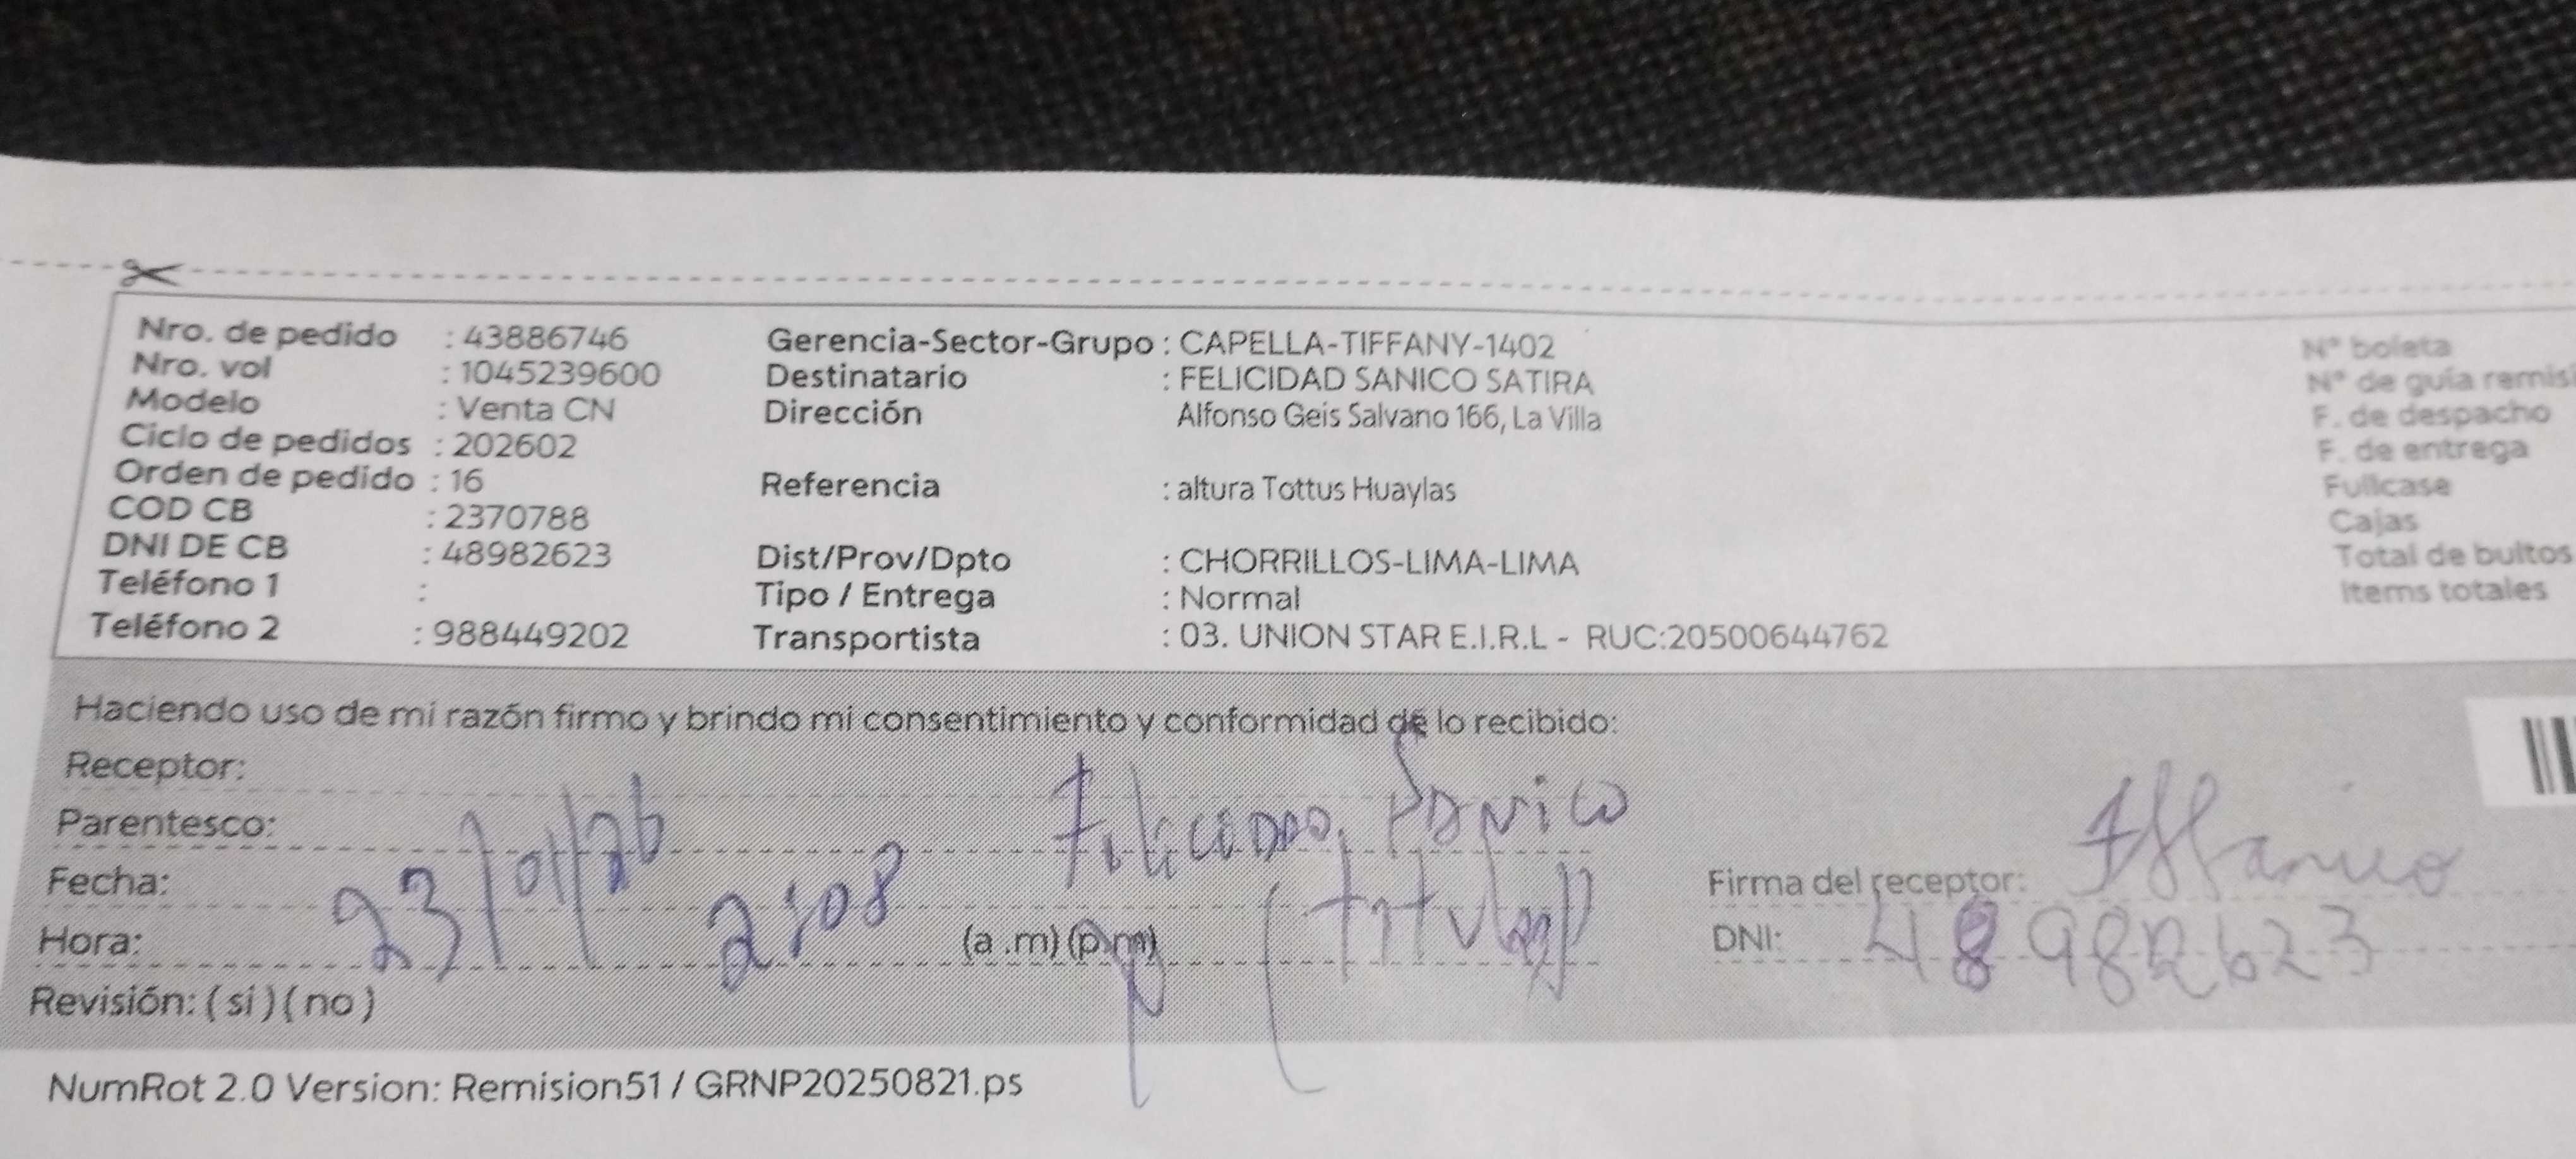 Nro. de pedido : 43886746
Nro. vol : 1045239600
Modelo : Venta CN
Ciclo de pedidos : 202602
Orden de pedido : 16
COD CB : 2370788
DNI DE CB : 48982623
Teléfono 1 :
Teléfono 2 : 988449202
Gerencia-Sector-Grupo : CAPELLA-TIFFANY-1402
Destinatario : FELICIDAD SANICO SATIRA
Dirección Alfonso Geis Salvano 166, La Villa
Referencia : altura Tottus Huaylas
Dist/Prov/Dpto : CHORRILLOS-LIMA-LIMA
Tipo / Entrega : Normal
Transportista : 03. UNION STAR E.I.R.L - RUC:20500644762
N° boleta
N° de guía remisi
F. de despacho
F. de entrega
Fullcase
Cajas
Total de bultos
Items totales
Haciendo uso de mi razón firmo y brindo mi consentimiento y conformidad de lo recibido:
Receptor:
Parentesco: Sanico
Fecha: 23/01/26
Firma del receptor:
Hora: 2:08 (a .m) (p.m)
DNI: 48982623
Revisión: ( si ) ( no )
NumRot 2.0 Version: Remision51 / GRNP20250821.ps